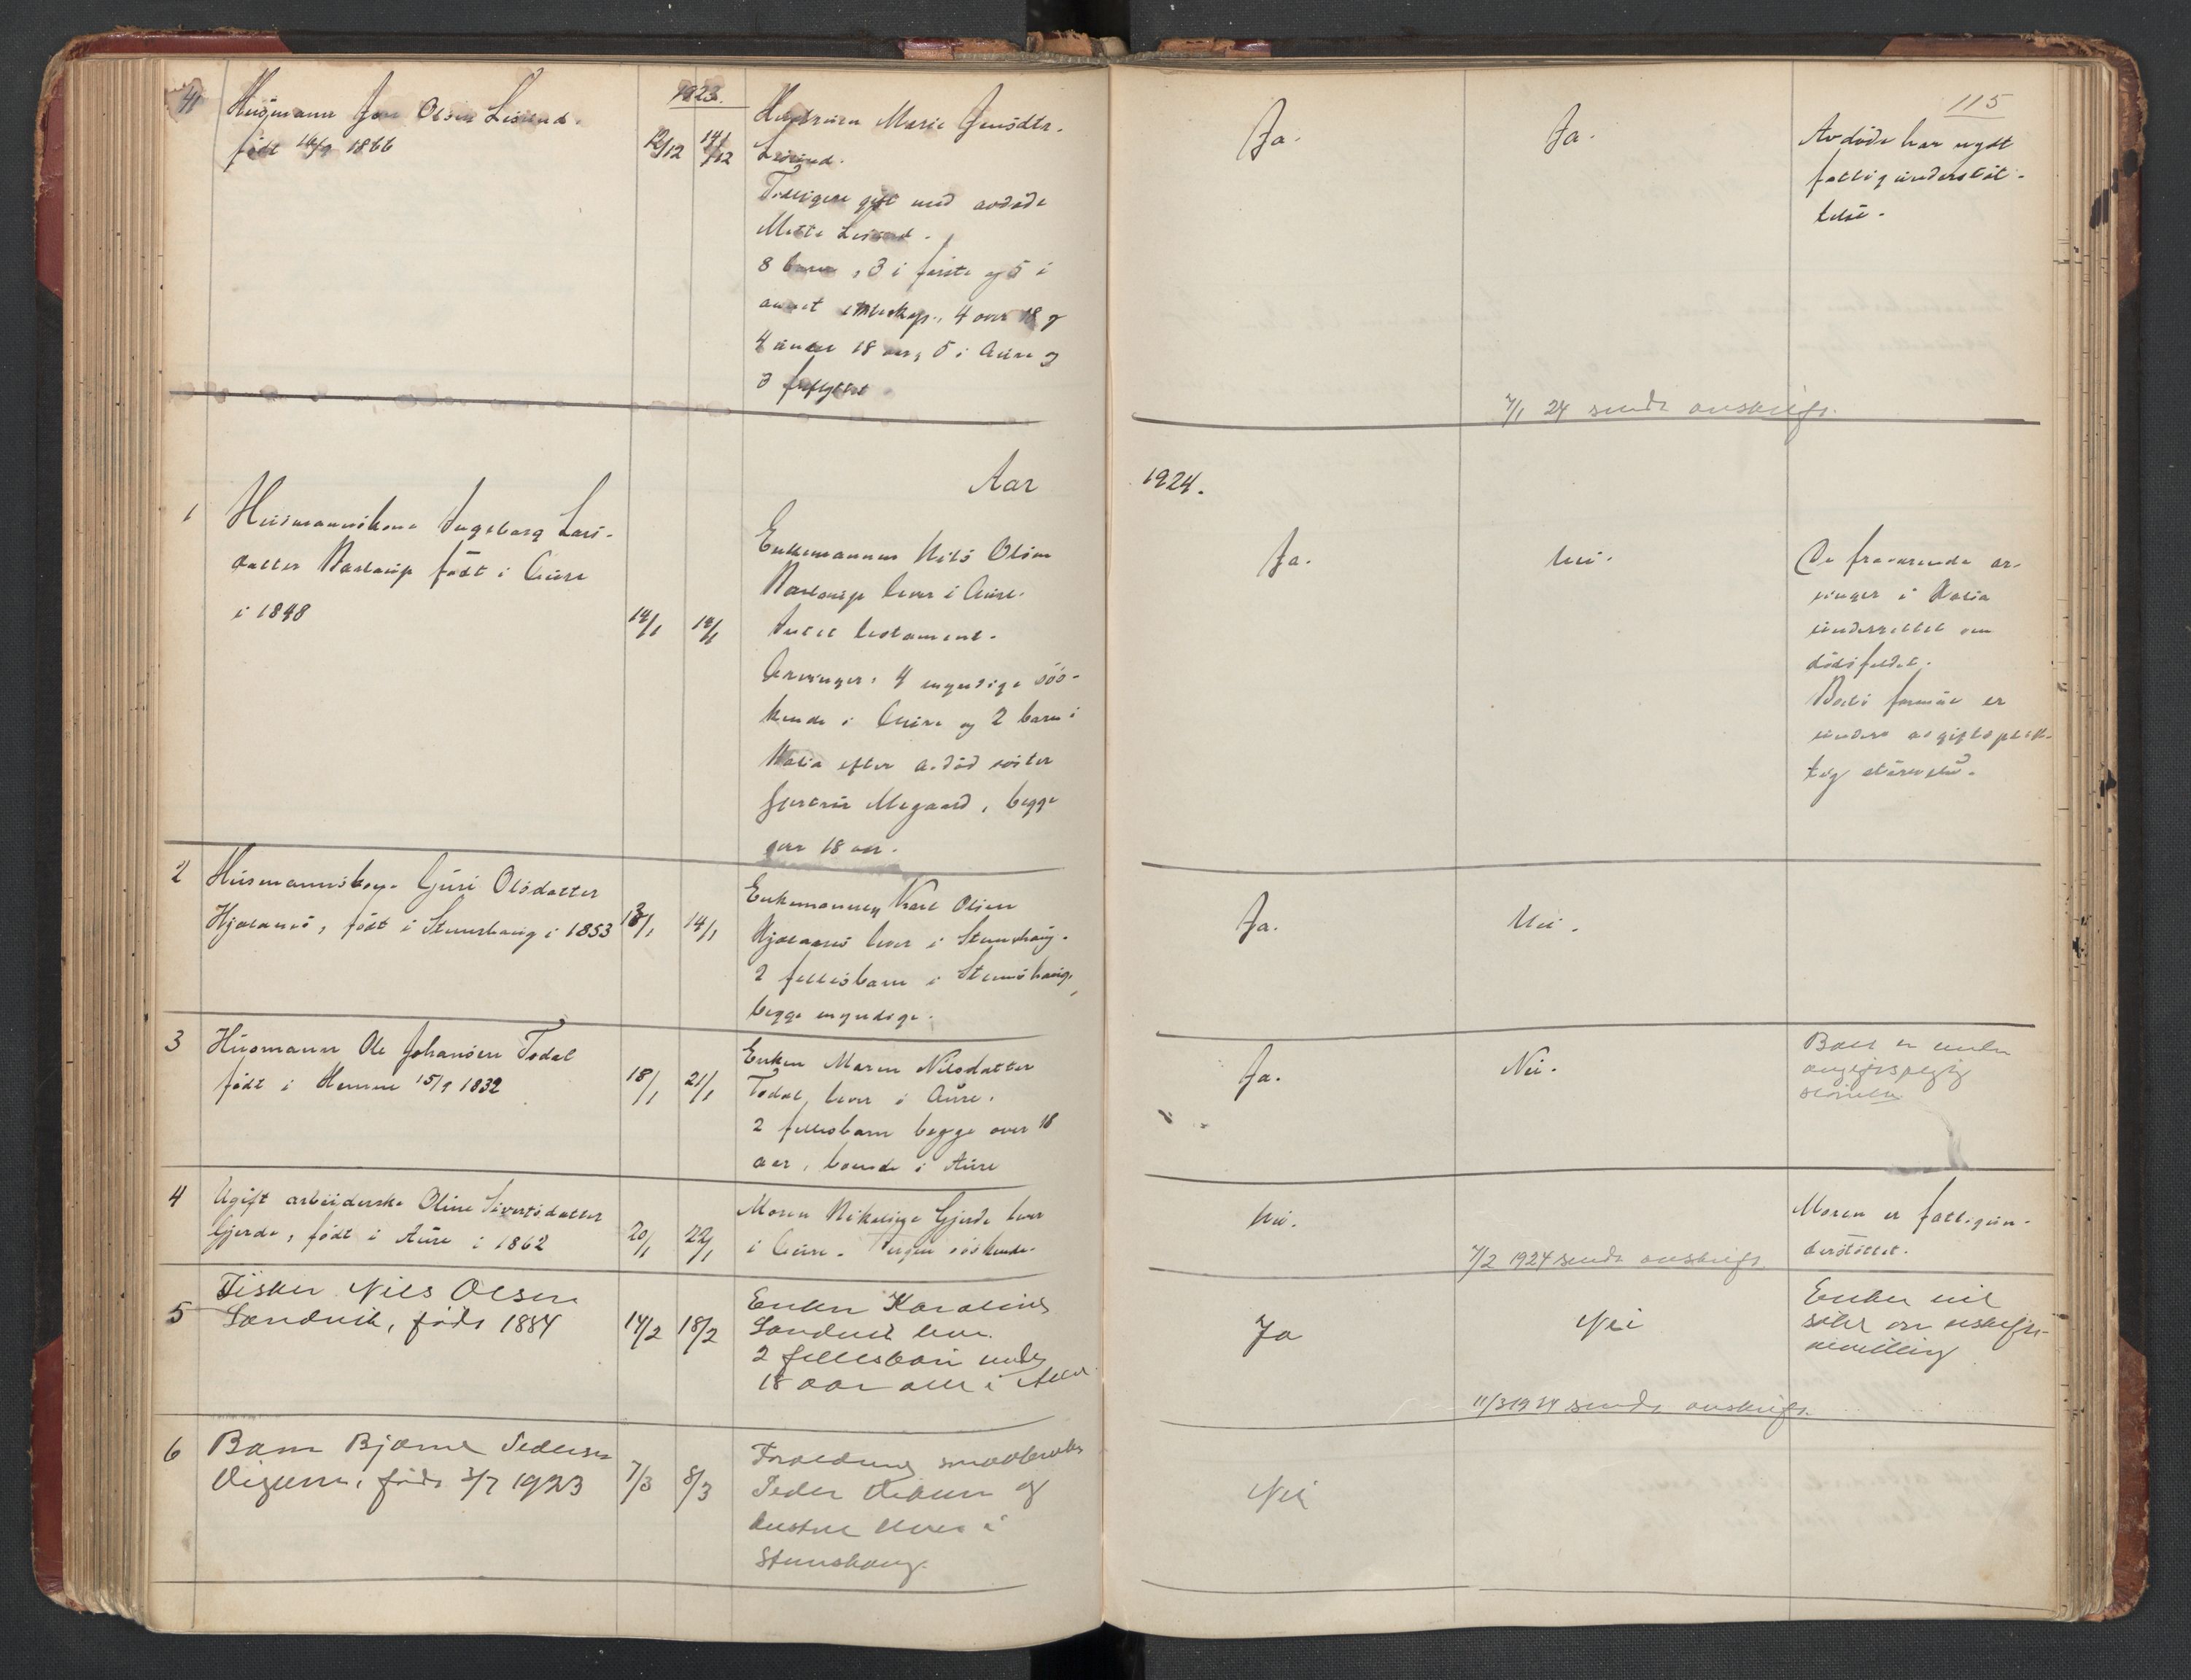 115
1923.
41
Husmann Jon Olsen Lesund.
født 16/9 1866
12/12 14/12
Hustruen Marie Jensdtr.
Lesund.
Tidligere gift med avdøde
Mette Lesund.
8 barn, 3 i første og 5 i
annet ekteskap, 4 over 18 og
4 under 18 aar, 5 i Aure og
3 fraflyttet.
Ja.
Ja.
Avdøde har nydt
fattigunderstöt-
telse.
7/1 24 sendt avskrift.
Aar 1924.
1
Husmannskone Ingeborg Lars-
datter født i Aure
i 1848
14/1 14/1
Enkemannen Nils Olsen
lever i Aure.
Intet testament.
Arvinger: 4 myndige sös-
kende i Aure og 2 barn i
Halsa efter avdöd söster
Megaard, begge
over 18 aar.
Ja.
Nei.
De fraværende ar-
vinger i Halsa
underrettet om
dödsfaldet.
Boets formue er
under avgiftsplik-
tig störrelse.
2
Husmannskone Guri Olsdatter
Hjelanes, födt i Stemshaug i 1853
13/1 14/1
Enkemannen Karl Olsen
Hjelanes lever i Stemshaug.
2 fellesbarn i Stemshaug,
begge myndige.
Ja.
Nei.
3
Husmann Ole Johansen Todal
födt i Hemne 15/9 1832
18/1 21/1
Enken Maren Nilsdatter
Todal, lever i Aure.
2 fellesbarn begge over 18
aar, boende i Aure
Ja.
Nei.
Boet er under
avgiftspligtig
störrelse
4
Ugift arbeiderske Oline Sivertsdatter
Gjerde, födt i Aure i 1862
20/1 22/1
Moren Nikoline Gjerde lever
i Aure. Ingen söskende.
Nei.
Moren er fattigun-
derstöttet.
7/2 1924 sendt avskrift
5
Fisker Nils Olsen
Sandvik, födt 1884
14/2 18/2
Enken Karoline
Sandvik lever.
2 fellesbarn under
18 aar alle i Aure
Ja
Nei
Enken vil
söke om uskifte-
bevilling
11/3 1924 sendt avskrift.
6
Barn Bjarne Pedersen
født 3/7 1923
7/3 8/3
Foreldrene smaabruker
Peder og
hustru lever i
Stemshaug.
Nei